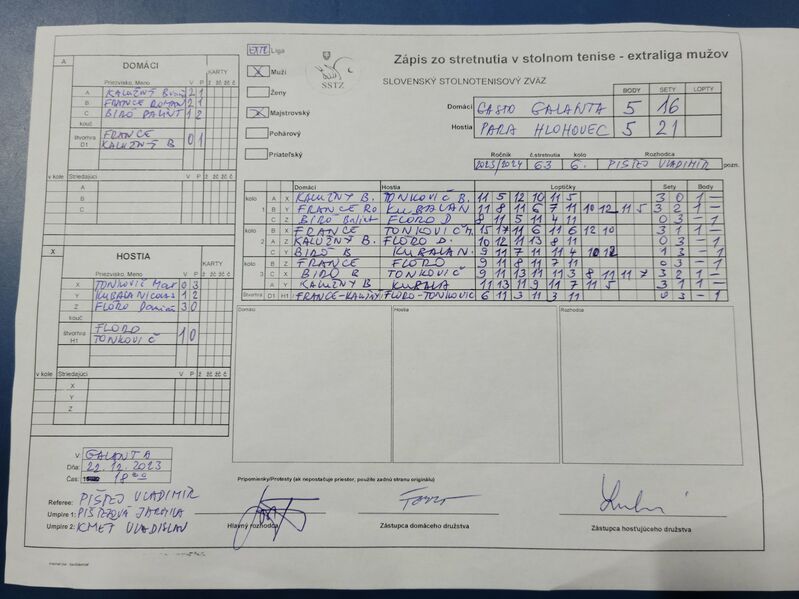 Zápis zo stretnutia v stolnom tenise - extraliga mužov
EXTR Liga
X Muži
Ženy
X Majstrovský
Pohárový
Priateľský
SSTZ
SLOVENSKÝ STOLNOTENISOVÝ ZVÄZ
BODY SETY LOPTY
Domáci GASTO GALANTA 5 16
Hostia PARA HLOHOVEC 5 21
Ročník č.stretnutia kolo Rozhodca
2023/2024 63 6. PIŠTEJ VLADIMÍR pozn.
A
DOMÁCI
KARTY
Priezvisko, Meno V P ž žč žč č
A KALUŽNÝ 2 1
B FRANCE ROMAN 2 1
C BIRÓ BALINT 1 2
kouč
štvorhra D1 FRANCE KALUŽNÝ B 0 1
v kole Striedajúci V P ž žč žč č
A
B
C
X
HOSTIA
KARTY
Priezvisko, Meno V P ž žč žč č
X TONKOVIČ 0 3
Y KUBALA 1 2
Z FLORO 3 0
kouč
štvorhra H1 FLORO TONKOVIČ 1 0
v kole Striedajúci V P ž žč žč č
X
Y
Z
Domáci Hostia Loptičky Sety Body
kolo A X KALUŽNÝ B. TONKOVIČ 11 5 12 10 11 5 3 0 1 –
1 B Y FRANCE Ro KUBALA N 11 8 11 6 7 11 10 12 11 5 3 2 1 –
C Z BIRÓ Balint FLORO D 8 11 5 11 4 11 0 3 – 1
kolo B X FRANCE TONKOVIČ M. 15 17 11 6 11 6 12 10 3 1 1 –
2 A Z KALUŽNÝ B. FLORO D. 10 12 11 13 8 11 0 3 – 1
C Y BIRÓ B KUBALA N. 11 9 7 11 11 4 10 12 1 3 – 1
kolo B Z FRANCE FLORO 9 11 8 11 7 11 0 3 – 1
3 C X BIRÓ B TONKOVIČ 9 11 13 11 11 3 8 11 11 7 3 2 1 –
A Y KALUŽNÝ B KUBALA 11 13 11 9 11 7 11 5 3 1 1 –
štvorhra D1 H1 FRANCE-KALUŽNÝ FLORO-TONKOVIC 6 11 3 11 3 11 0 3 – 1
Domáci Hostia Rozhodca
V: GALANTA
Dňa: 22.12.2023
Čas: 18 00
Pripomienky/Protesty (ak nepostačuje priestor, použite zadnú stranu originálu)
Referee: PIŠTEJ VLADIMÍR
Umpire 1: PIŠTEJOVÁ JARMILA
Umpire 2: KMEŤ VLADISLAV
Hlavný rozhodca Zástupca domáceho družstva Zástupca hosťujúceho družstva